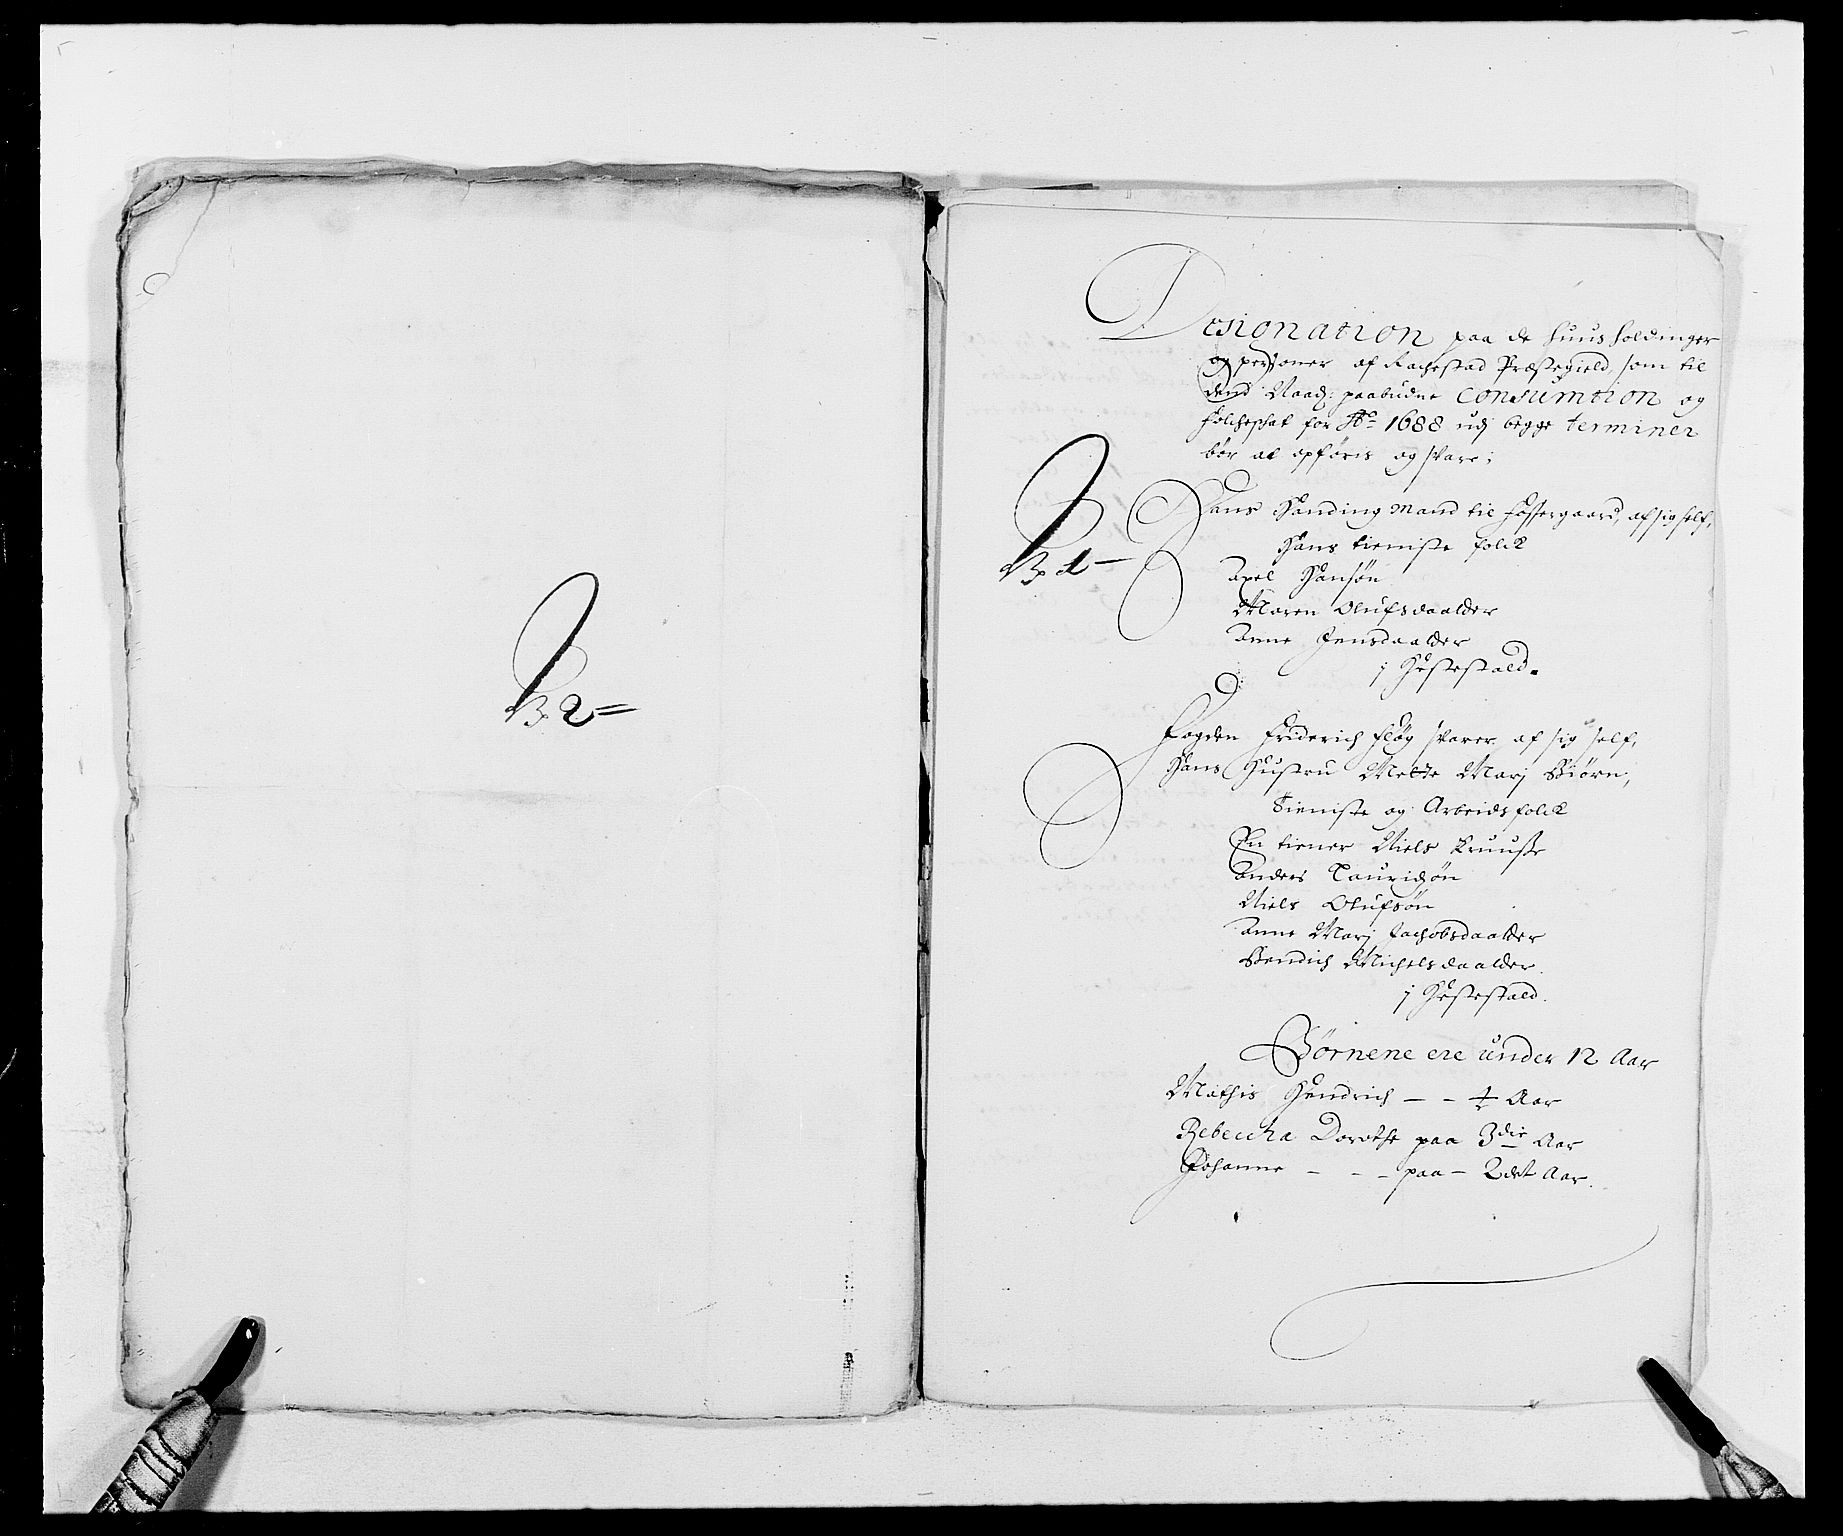 B. 2 =
Designation paa de huusholdinger
og personer af Rachestad Præstegield, som til
dend Naad: paabudne Consumtion og
folcheschat for Ao 1688 udj begge terminer
bør at opføris og svare;
B. 1 –
Hans Handing Mand til fossergaard, af sig self,
Hans tieniste folck
Axel Hansøn
Maren Olufsdaatder
Anne Jensdaatder
j Hestestald.
Fogden Friderich fløg svarer af sig self,
Hans Hustru Mette Marj Biørn,
Tieniste og Arbeidsfolck
En tiener Niels Kruuse
Anders Lauridsøn
Niels Olufsøn
Anne Marj Jachobsdaatder
Bendich Michelsdaatder.
j Hestestald.
Børnene ere under 12 Aar
Mathis Hendrich – – 4 Aar
Rebeccha Dorothe paa 3die Aar
Johanne – – – paa – 2det Aar.